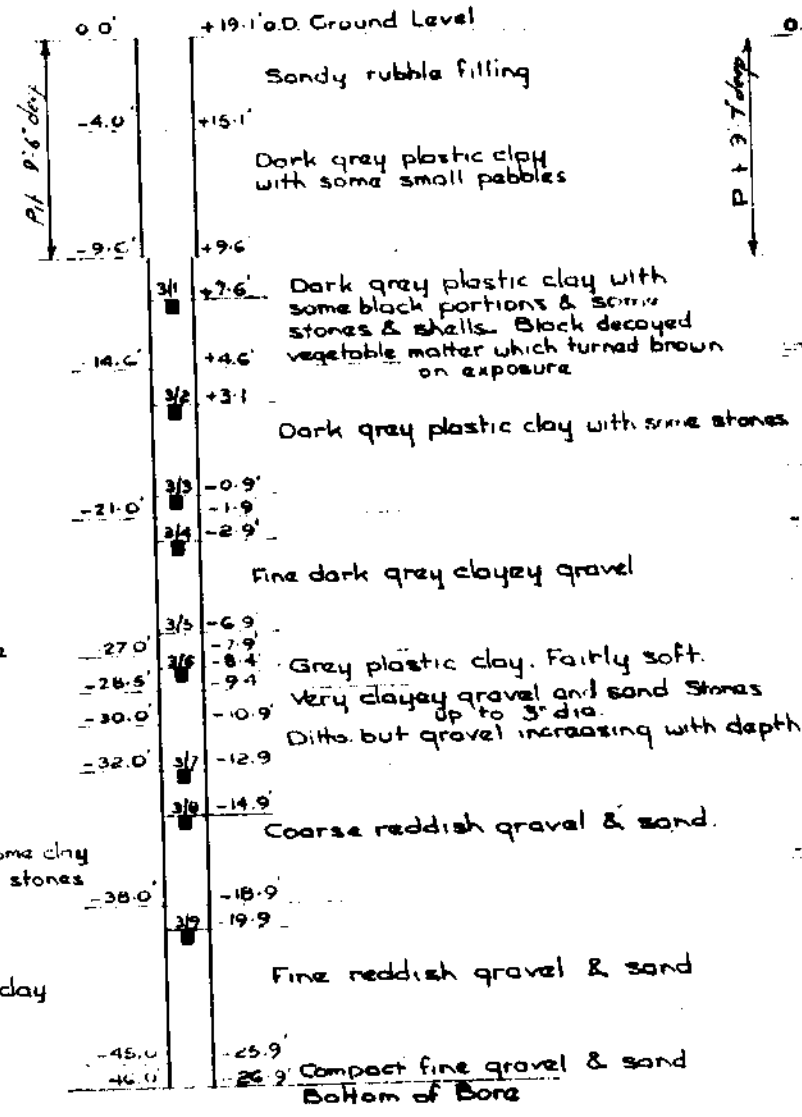 0.0' +19.1' O.D. Ground Level 0.
Sandy rubble filling
Pit 9'.6" deep
-4.0' +15.1'
Pit 3'.7' deep
Dark grey plastic clay
with some small pebbles
-9.6' +9.6'
3/1 +7.6' Dark grey plastic clay with
some black portions & some
stones & shells. Black decayed
-14.6' +4.6' vegetable matter which turned brown
on exposure
3/2 +3.1
Dark grey plastic clay with some stones
3/3 -0.9'
-21.0' -1.9
3/4 -2.9'
Fine dark grey clayey gravel
3/5 -6.9
27.0' -7.9'
3/6 -8.4' Grey plastic clay. Fairly soft.
-28.5' -9.4
Very clayey gravel and sand Stones
up to 3" dia.
-30.0' -10.9'
Ditto. but gravel increasing with depth
-32.0' 3/7 -12.9
3/8 -14.9'
Coarse reddish gravel & sand.
some clay
stones
-38.0' -18.9'
3/9 -19.9
Fine reddish gravel & sand
clay
-45.0 -25.9'
Compact fine gravel & sand
-46.0' -26.9'
Bottom of Bore